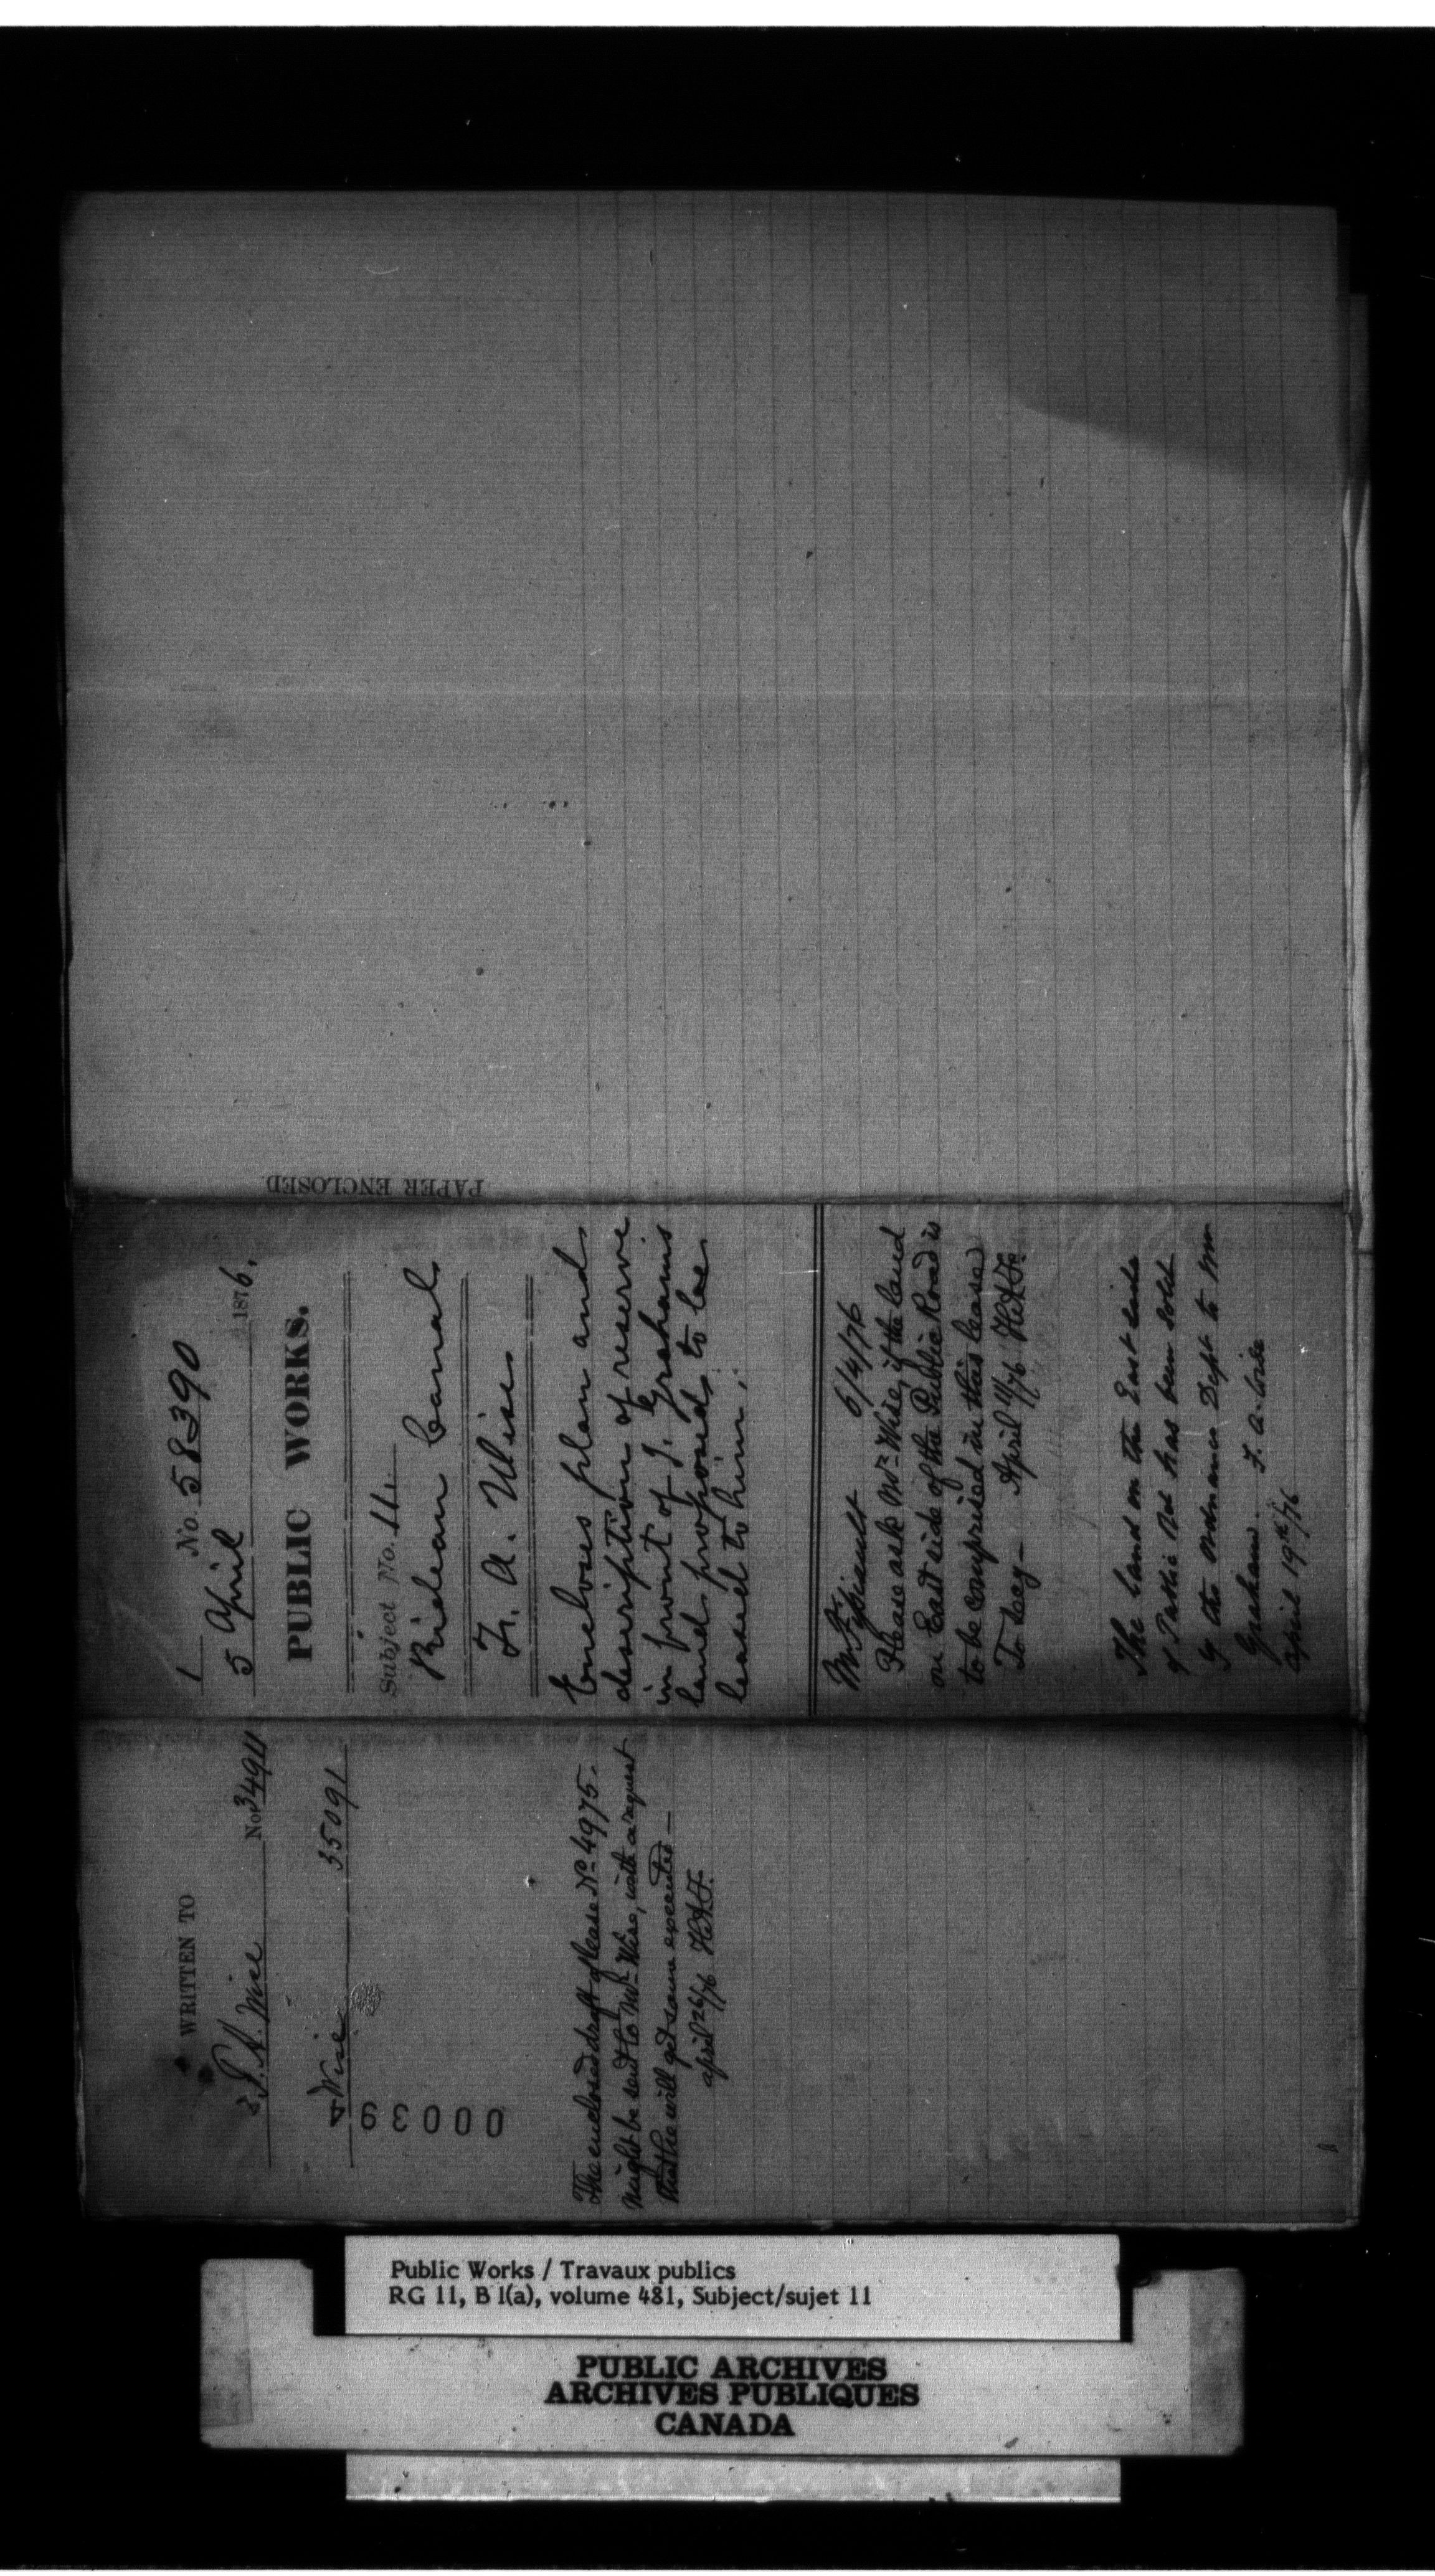 PAPER ENCLOSED
1 No. 58390
5 April 1876.
PUBLIC WORKS.
Subject No. 11.
Rideau Canal
F. A. Wise
Encloses plan and
description of reserve
in front of J. Graham's
land proposed to be
leased to him.
6/4/76
Please ask Mr. Wise, if the land
on East side of the Public Road is
to be comprised in this lease
April 11/76
The land on the East side
of Public Rd has been sold
by the Ordnance Dept to Mr
Graham. F. A. Wise
April 19th/76
WRITTEN TO
F. A. Wise No 34911
Wise 35091
00039
The enclosed draft of lease No 4975.
might be sent to Mr. Wise, with a request
that he will get same executed —
April 26/76
Public Works / Travaux publics
RG 11, B 1(a), volume 481, Subject/sujet 11
PUBLIC ARCHIVES
ARCHIVES PUBLIQUES
CANADA